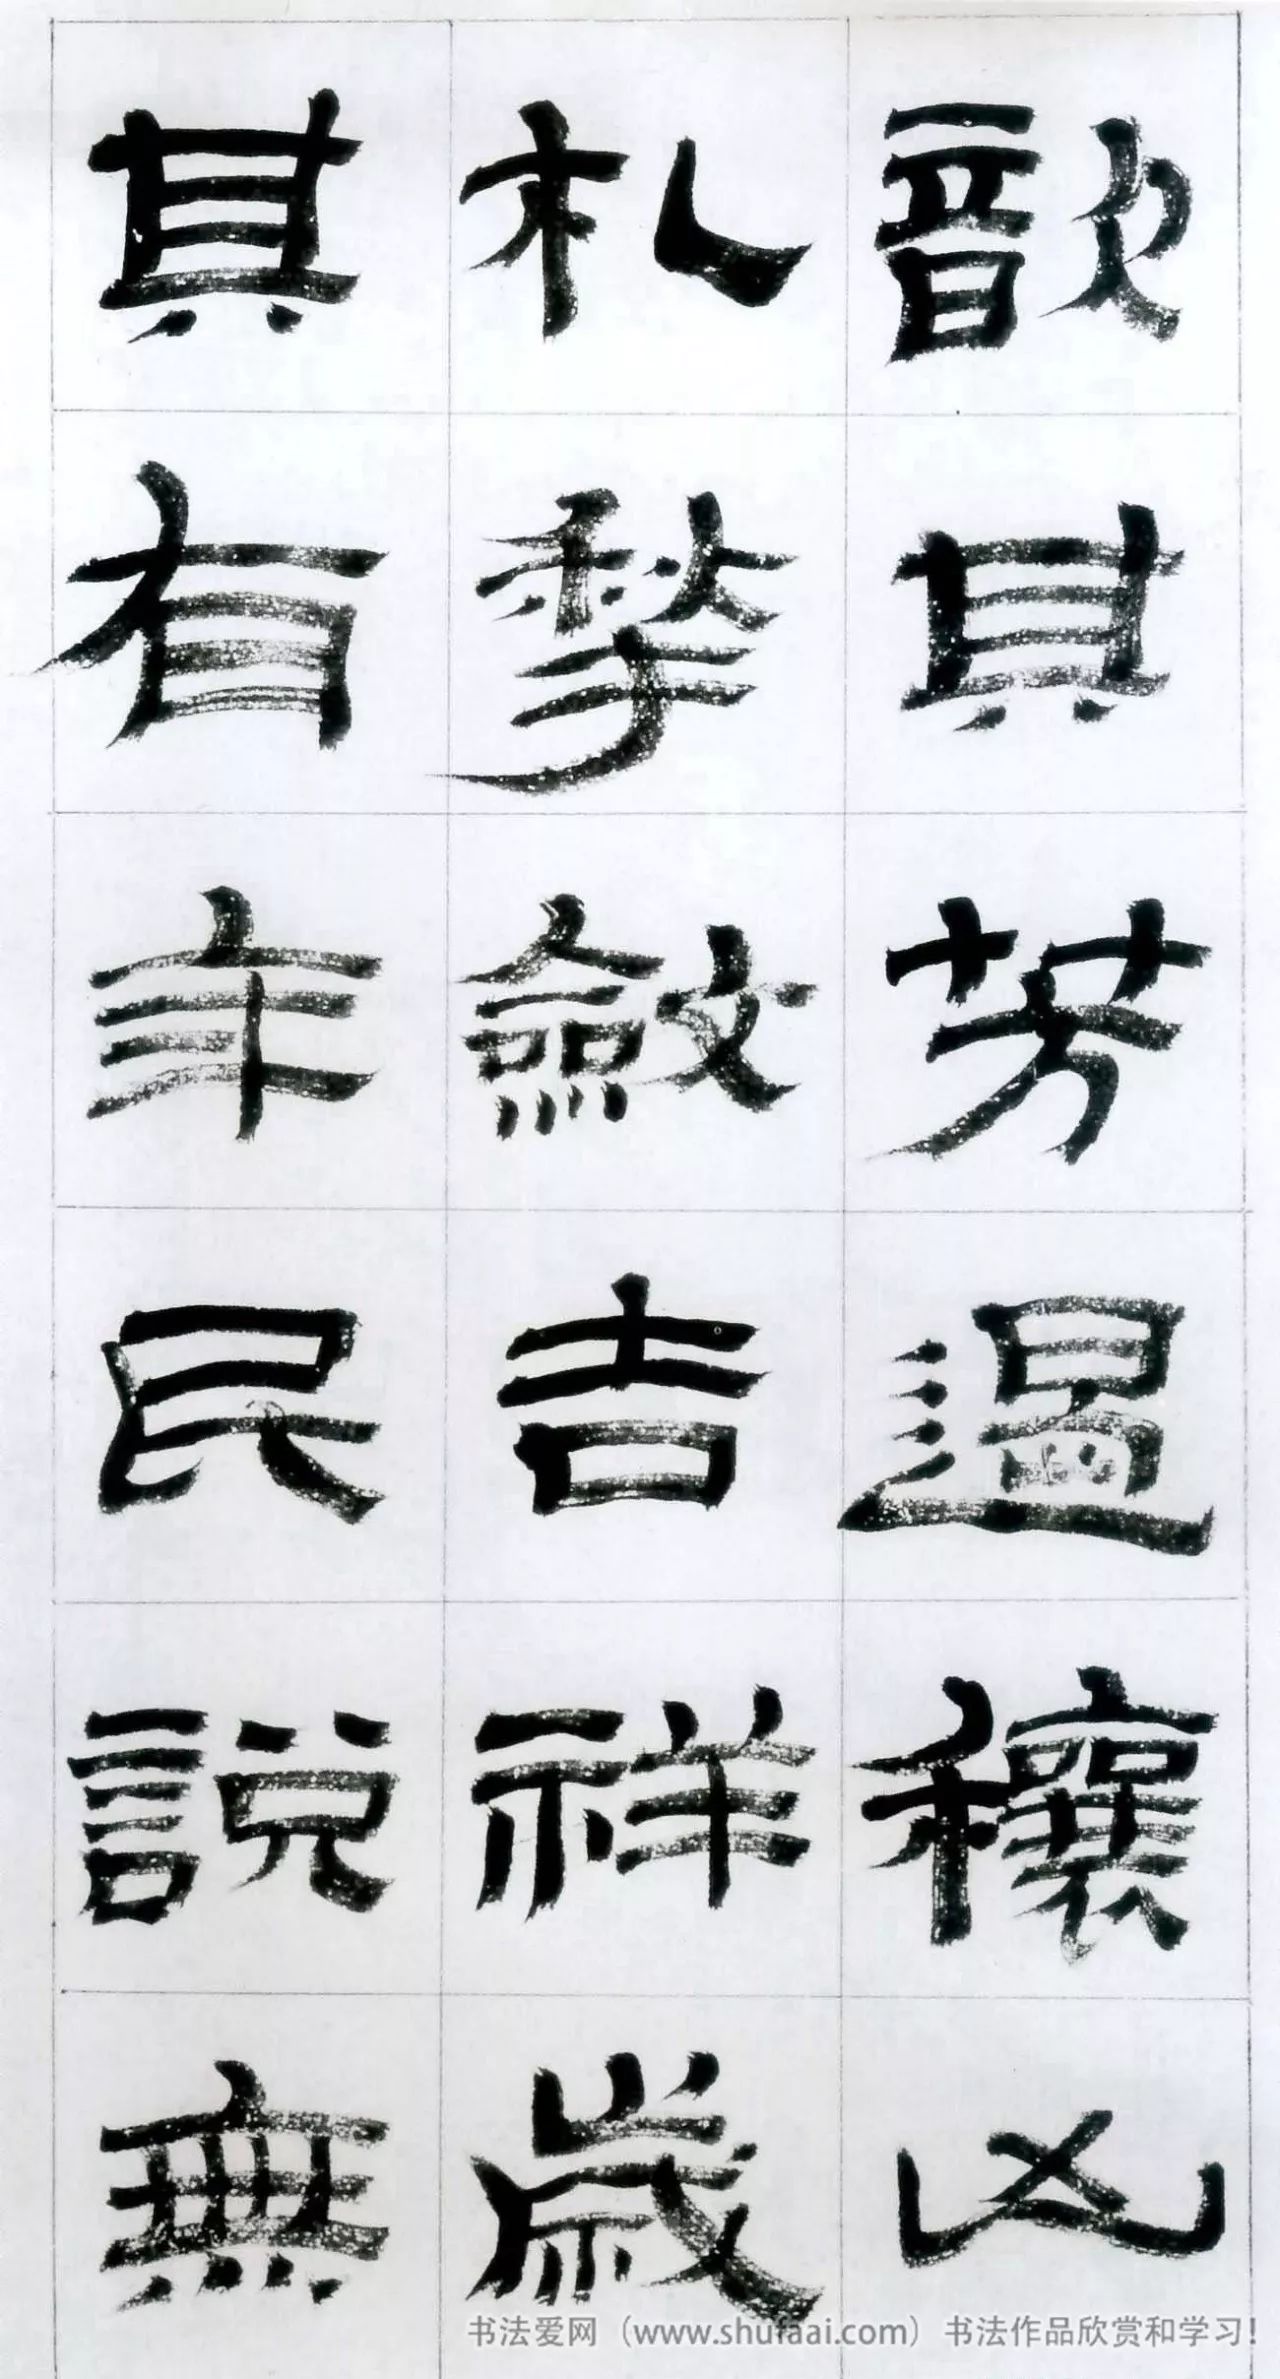 歆其芳遏穰凶
札揫斂吉祥歲
其有年民說無
书法爱网（www.shufaai.com）书法作品欣赏和学习！